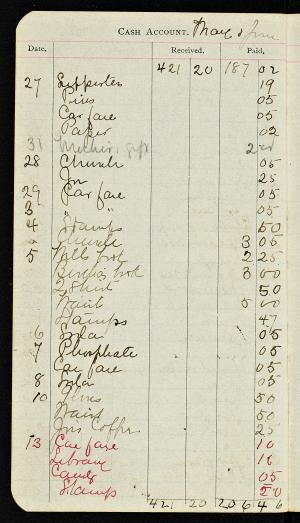 CASH ACCOUNT. May & June
Date. Received. Paid.
421 20 187 02
27 Supporters 19
Pins 05
Car fare 05
Paper 02
31 Mother's gift 2
28 Church 05
25
29 Car fare 05
3 " " 05
4 Stamps 50
Church 3 05
5 2 25
3 00
50
Waist 5 00
Stamps 47
6 Soda 05
7 Phosphate 05
Car fare 05
8 Soda 05
10 Gloves 50
Waist 50
25
13 Car fare 10
Library 16
Candy 05
Stamps 20
421 20 206 46